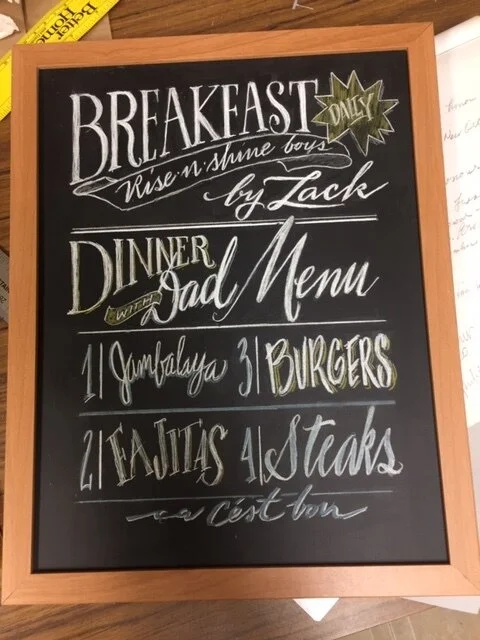 Better
Home
BREAKFAST
DAILY
Rise·n·shine boys
by Zack
DINNER
WITH Dad Menu
1| Jambalaya 3| BURGERS
2| FAJITAS 4| Steaks
c'est bon